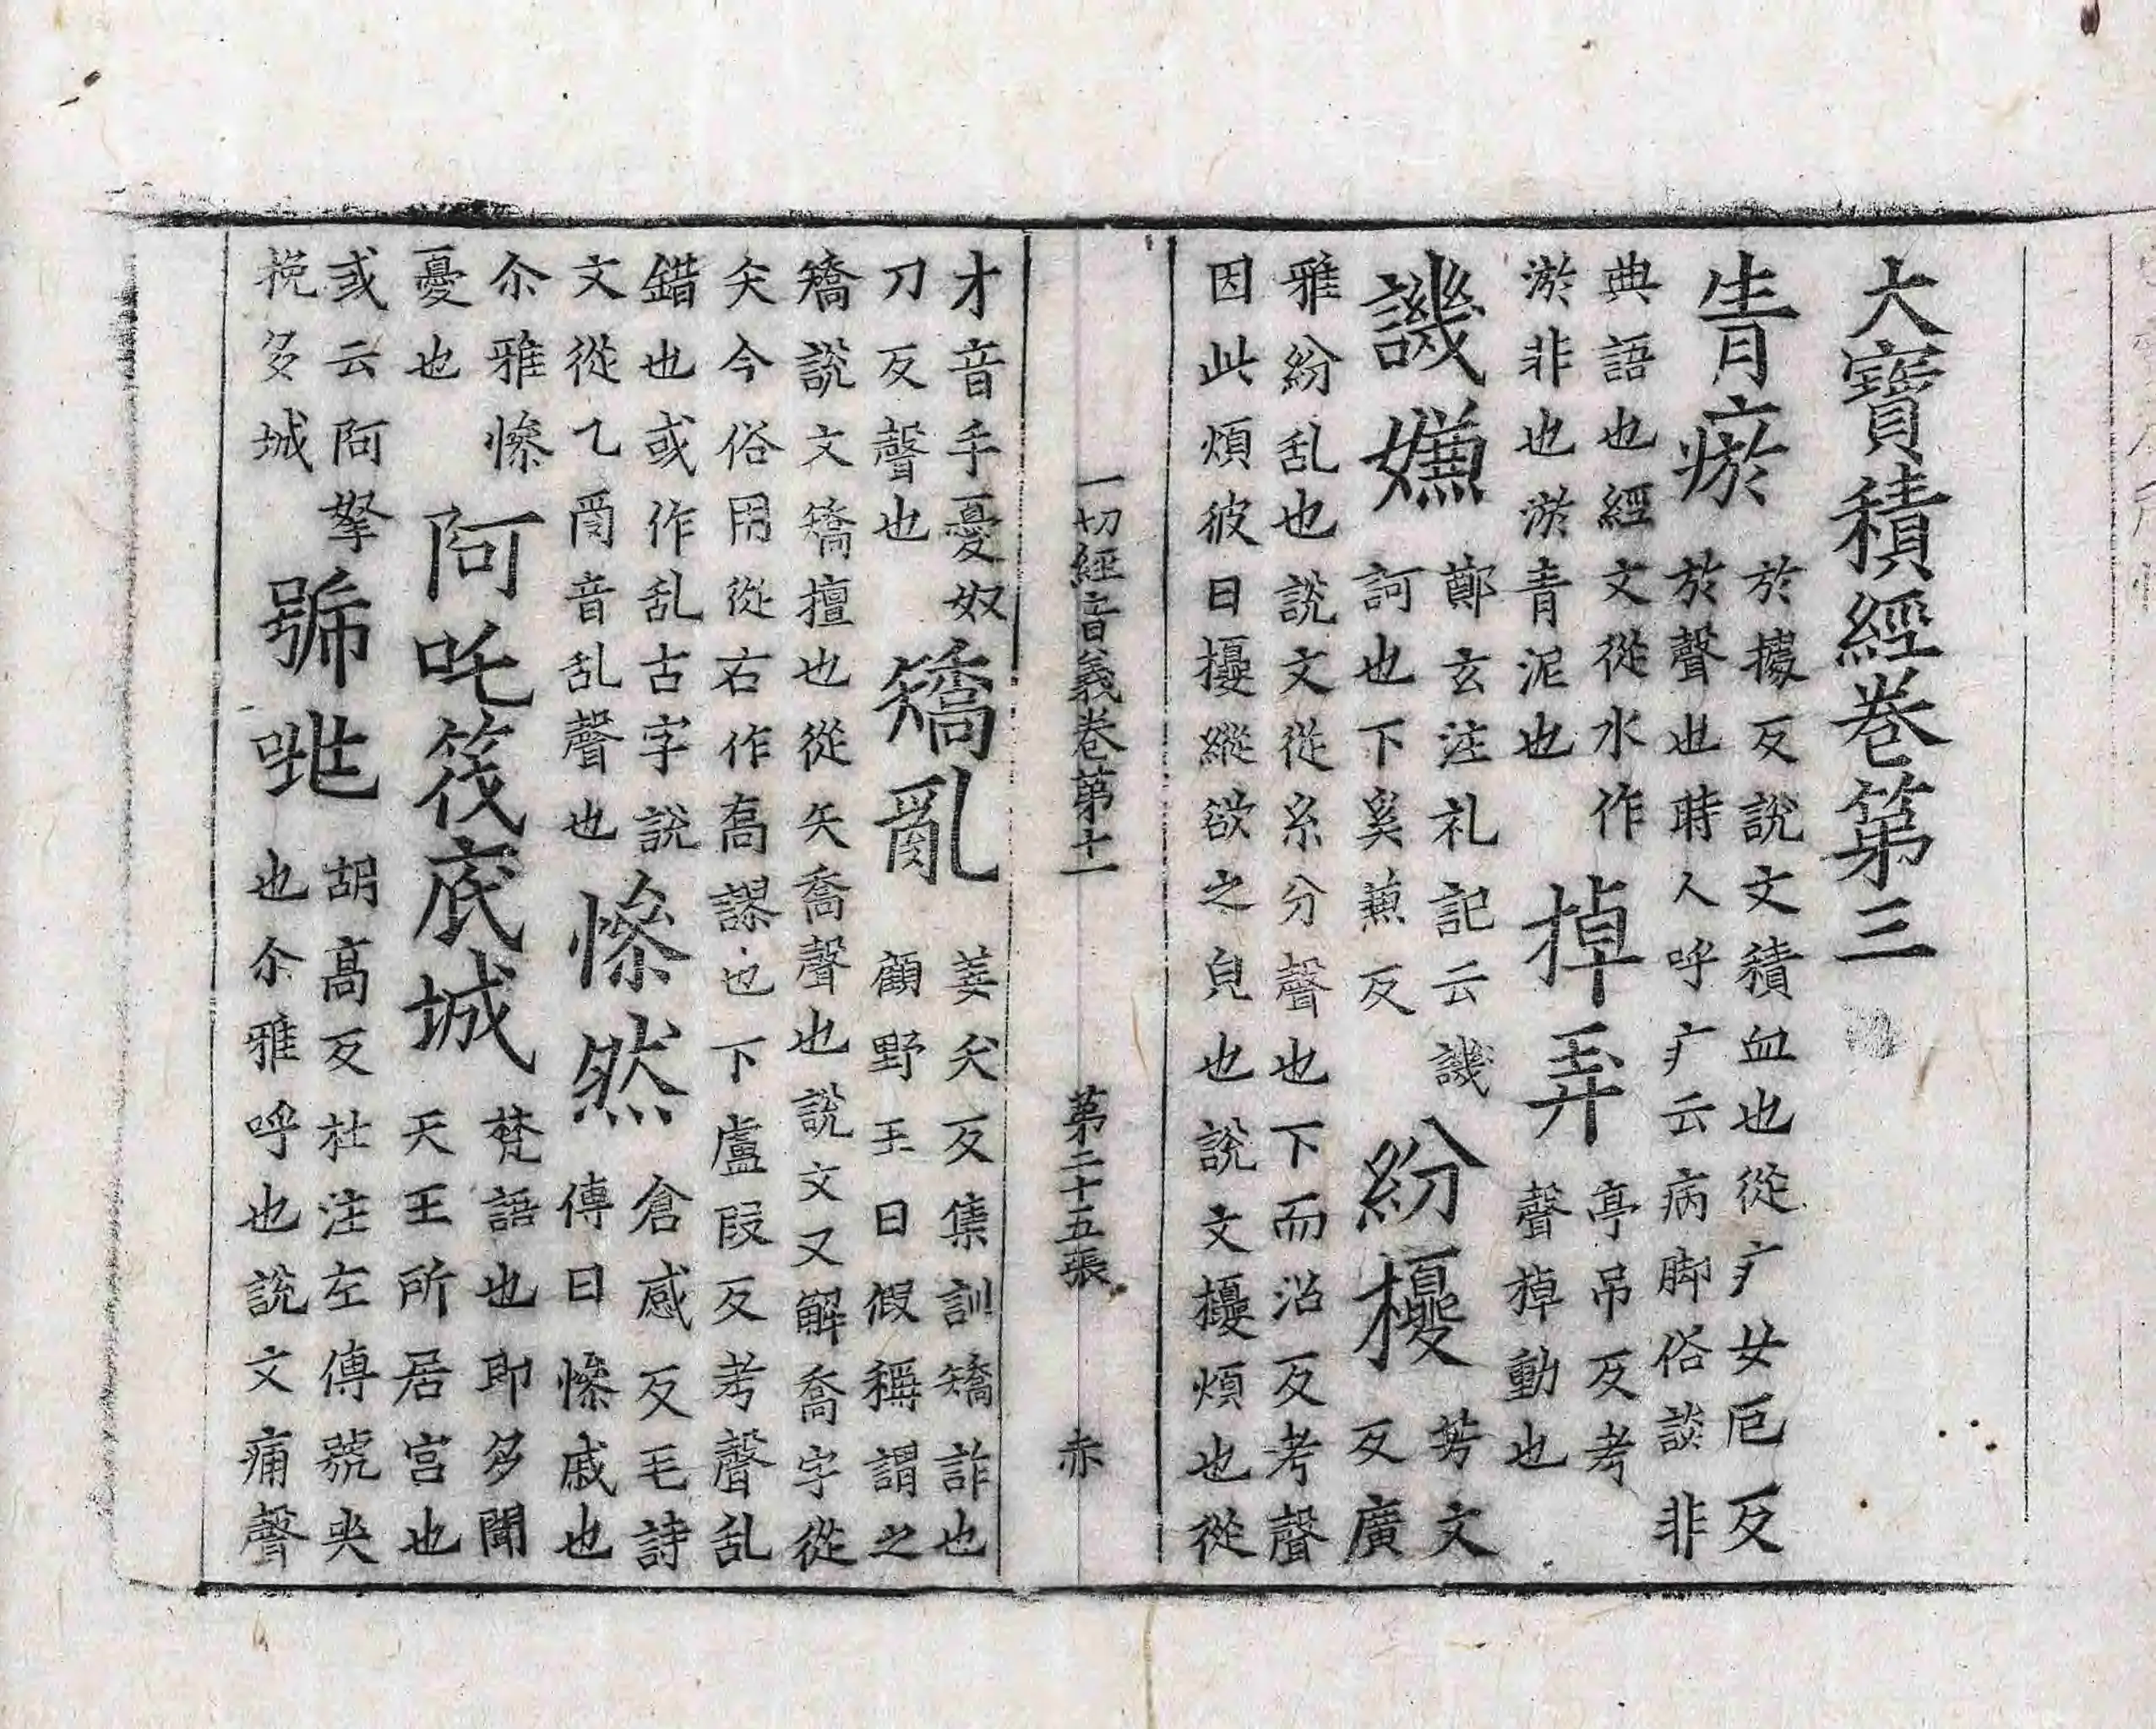 大寶積經卷第三
青瘀
於據反說文積血也從疒女厄反
於聲也時人呼疒云病脚俗談非
典語也經文從水作
淤非也淤青泥也
掉弄
亭吊反考
聲掉動也
譏嫌
鄭玄注礼記云譏
訶也下奚蒹反
紛擾
芳文
反廣
雅紛乱也說文從糸分聲也下而沼反考聲
因此煩彼曰擾縱欲之皃也說文擾煩也從
一切經音義卷第十一 第二十五張 赤
才音手憂奴
刀反聲也
矯亂
姜夭反集訓矯詐也
顧野王曰假稱謂之
矯說文矯擅也從矢喬聲也說文又解喬字從
夭今俗用從右作髙謬也下盧段反考聲乱
錯也或作乱古字說
文從乙𤔔音乱聲也
慘然
倉感反毛詩
傳曰慘戚也
尒雅慘
憂也
阿吒筏底城
梵語也即多聞
天王所居宮也
或云阿拏
挽多城
號咷
胡高反杜注左傳號央
也尒雅呼也說文痛聲